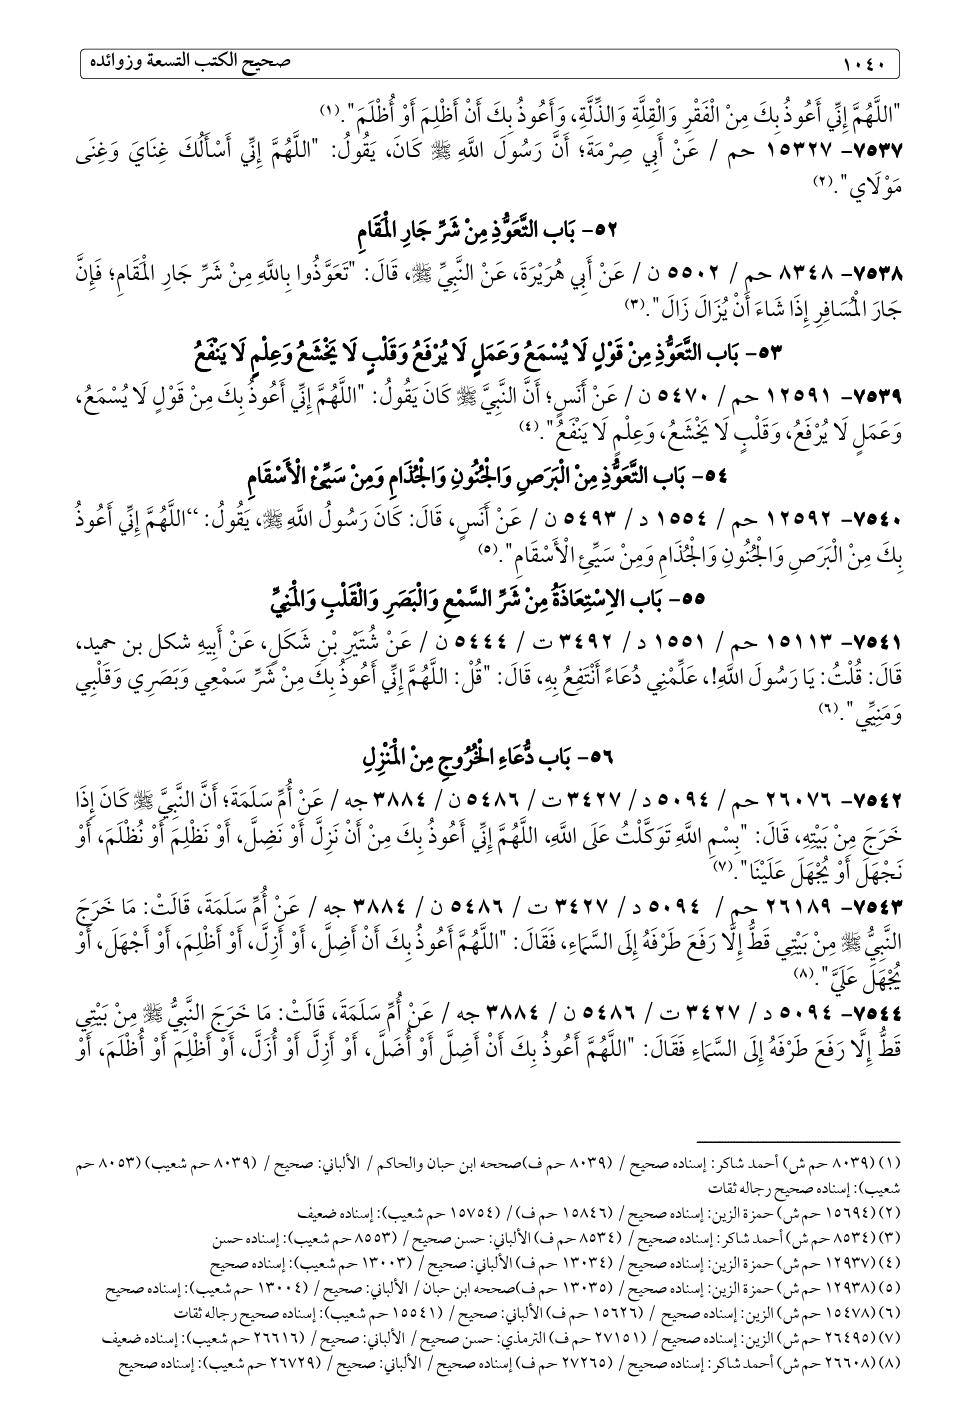 ١٠٤٠ صحيح الكتب التسعة وزوائده
"اللَّهُمَّ إِنِّي أَعُوذُ بِكَ مِنْ الْفَقْرِ وَالْقِلَّةِ وَالذِّلَّةِ، وَأَعُوذُ بِكَ أَنْ أَظْلِمَ أَوْ أُظْلَمَ".(١)
٧٥٣٧- ١٥٣٢٧ حم / عَنْ أَبِي صِرْمَةَ؛ أَنَّ رَسُولَ اللَّهِ ﷺ كَانَ، يَقُولُ: "اللَّهُمَّ إِنِّي أَسْأَلُكَ غِنَايَ وَغِنَى
مَوْلَاي".(٢)
٥٢- بَاب التَّعَوُّذِ مِنْ شَرِّ جَارِ الْمَقَامِ
٧٥٣٨- ٨٣٤٨ حم / ٥٥٠٢ ن / عَنْ أَبِي هُرَيْرَةَ، عَنْ النَّبِيِّ ﷺ، قَالَ: "تَعَوَّذُوا بِاللَّهِ مِنْ شَرِّ جَارِ الْمَقَامِ؛ فَإِنَّ
جَارَ الْمُسَافِرِ إِذَا شَاءَ أَنْ يُزَالَ زَالَ".(٣)
٥٣- بَاب التَّعَوُّذِ مِنْ قَوْلٍ لَا يُسْمَعُ وَعَمَلٍ لَا يُرْفَعُ وَقَلْبٍ لَا يَخْشَعُ وَعِلْمٍ لَا يَنْفَعُ
٧٥٣٩- ١٢٥٩١ حم / ٥٤٧٠ ن / عَنْ أَنَسٍ؛ أَنَّ النَّبِيَّ ﷺ كَانَ يَقُولُ: "اللَّهُمَّ إِنِّي أَعُوذُ بِكَ مِنْ قَوْلٍ لَا يُسْمَعُ،
وَعَمَلٍ لَا يُرْفَعُ، وَقَلْبٍ لَا يَخْشَعُ، وَعِلْمٍ لَا يَنْفَعُ".(٤)
٥٤- بَاب التَّعَوُّذِ مِنْ الْبَرَصِ وَالْجُنُونِ وَالْجُذَامِ وَمِنْ سَيِّئْ الْأَسْقَامِ
٧٥٤٠- ١٢٥٩٢ حم / ١٥٥٤ د / ٥٤٩٣ ن / عَنْ أَنَسٍ، قَالَ: كَانَ رَسُولُ اللَّهِ ﷺ، يَقُولُ: “اللَّهُمَّ إِنِّي أَعُوذُ
بِكَ مِنْ الْبَرَصِ وَالْجُنُونِ وَالْجُذَامِ وَمِنْ سَيِّئِ الْأَسْقَامِ".(٥)
٥٥- بَاب الِاسْتِعَاذَةُ مِنْ شَرِّ السَّمْعِ وَالْبَصَرِ وَالْقَلْبِ وَالْمَنِيِّ
٧٥٤١- ١٥١١٣ حم / ١٥٥١ د / ٣٤٩٢ ت / ٥٤٤٤ ن / عَنْ شُتَيْرِ بْنِ شَكَلٍ، عَنْ أَبِيهِ شكل بن حميد،
قَالَ: قُلْتُ: يَا رَسُولَ اللَّهِ!، عَلِّمْنِي دُعَاءً أَنْتَفِعُ بِهِ، قَالَ: "قُلْ: اللَّهُمَّ إِنِّي أَعُوذُ بِكَ مِنْ شَرِّ سَمْعِي وَبَصَرِي وَقَلْبِي
وَمَنِيِّي".(٦)
٥٦- بَاب دُّعَاءِ الْخُرُوجِ مِنْ الْمَنْزِلِ
٧٥٤٢- ٢٦٠٧٦ حم / ٥٠٩٤ د / ٣٤٢٧ ت / ٥٤٨٦ ن / ٣٨٨٤ جه / عَنْ أُمِّ سَلَمَةَ؛ أَنَّ النَّبِيَّ ﷺ كَانَ إِذَا
خَرَجَ مِنْ بَيْتِهِ، قَالَ: "بِسْمِ اللَّهِ تَوَكَّلْتُ عَلَى اللَّهِ، اللَّهُمَّ إِنِّي أَعُوذُ بِكَ مِنْ أَنْ نَزِلَّ أَوْ نَضِلَّ، أَوْ نَظْلِمَ أَوْ نُظْلَمَ، أَوْ
نَجْهَلَ أَوْ يُجْهَلَ عَلَيْنَا".(٧)
٧٥٤٣- ٢٦١٨٩ حم / ٥٠٩٤ د / ٣٤٢٧ ت / ٥٤٨٦ ن / ٣٨٨٤ جه / عَنْ أُمِّ سَلَمَةَ، قَالَتْ: مَا خَرَجَ
النَّبِيُّ ﷺ مِنْ بَيْتِي قَطُّ إِلَّا رَفَعَ طَرْفَهُ إِلَى السَّمَاءِ، فَقَالَ: "اللَّهُمَّ أَعُوذُ بِكَ أَنْ أَضِلَّ، أَوْ أَزِلَّ، أَوْ أَظْلِمَ، أَوْ أَجْهَلَ، أَوْ
يُجْهَلَ عَلَيَّ".(٨)
٧٥٤٤- ٥٠٩٤ د / ٣٤٢٧ ت / ٥٤٨٦ ن / ٣٨٨٤ جه / عَنْ أُمِّ سَلَمَةَ، قَالَتْ: مَا خَرَجَ النَّبِيُّ ﷺ مِنْ بَيْتِي
قَطُّ إِلَّا رَفَعَ طَرْفَهُ إِلَى السَّمَاءِ فَقَالَ: "اللَّهُمَّ أَعُوذُ بِكَ أَنْ أَضِلَّ أَوْ أُضَلَّ، أَوْ أَزِلَّ أَوْ أُزَلَّ، أَوْ أَظْلِمَ أَوْ أُظْلَمَ، أَوْ
(١) (٨٠٣٩ حم ش) أحمد شاكر: إسناده صحيح / (٨٠٣٩ حم ف)صححه ابن حبان والحاكم / الألباني: صحيح / (٨٠٣٩ حم شعيب) (٨٠٥٣ حم
شعيب): إسناده صحيح رجاله ثقات
(٢) (١٥٦٩٤ حم ش) حمزة الزين: إسناده صحيح / (١٥٨٤٦ حم ف)/ (١٥٧٥٤ حم شعيب): إسناده ضعيف
(٣) (٨٥٣٤ حم ش) أحمد شاكر: إسناده صحيح / (٨٥٣٤ حم ف) الألباني: حسن صحيح / (٨٥٥٣ حم شعيب): إسناده حسن
(٤) (١٢٩٣٧ حم ش) حمزة الزين: إسناده صحيح / (١٣٠٣٤ حم ف) الألباني: صحيح / (١٣٠٠٣ حم شعيب): إسناده صحيح
(٥) (١٢٩٣٨ حم ش) حمزة الزين: إسناده صحيح / (١٣٠٣٥ حم ف)صححه ابن حبان/ الألباني: صحيح / (١٣٠٠٤ حم شعيب): إسناده صحيح
(٦) (١٥٤٧٨ حم ش) الزين: إسناده صحيح / (١٥٦٢٦ حم ف) الألباني: صحيح / (١٥٥٤١ حم شعيب): إسناده صحيح رجاله ثقات
(٧) (٢٦٤٩٥ حم ش) الزين: إسناده صحيح / (٢٧١٥١ حم ف) الترمذي: حسن صحيح / الألباني: صحيح / (٢٦٦١٦ حم شعيب): إسناده ضعيف
(٨) (٢٦٦٠٨ حم ش) أحمد شاكر: إسناده صحيح / (٢٧٢٦٥ حم ف) إسناده صحيح / الألباني: صحيح / (٢٦٧٢٩ حم شعيب): إسناده صحيح